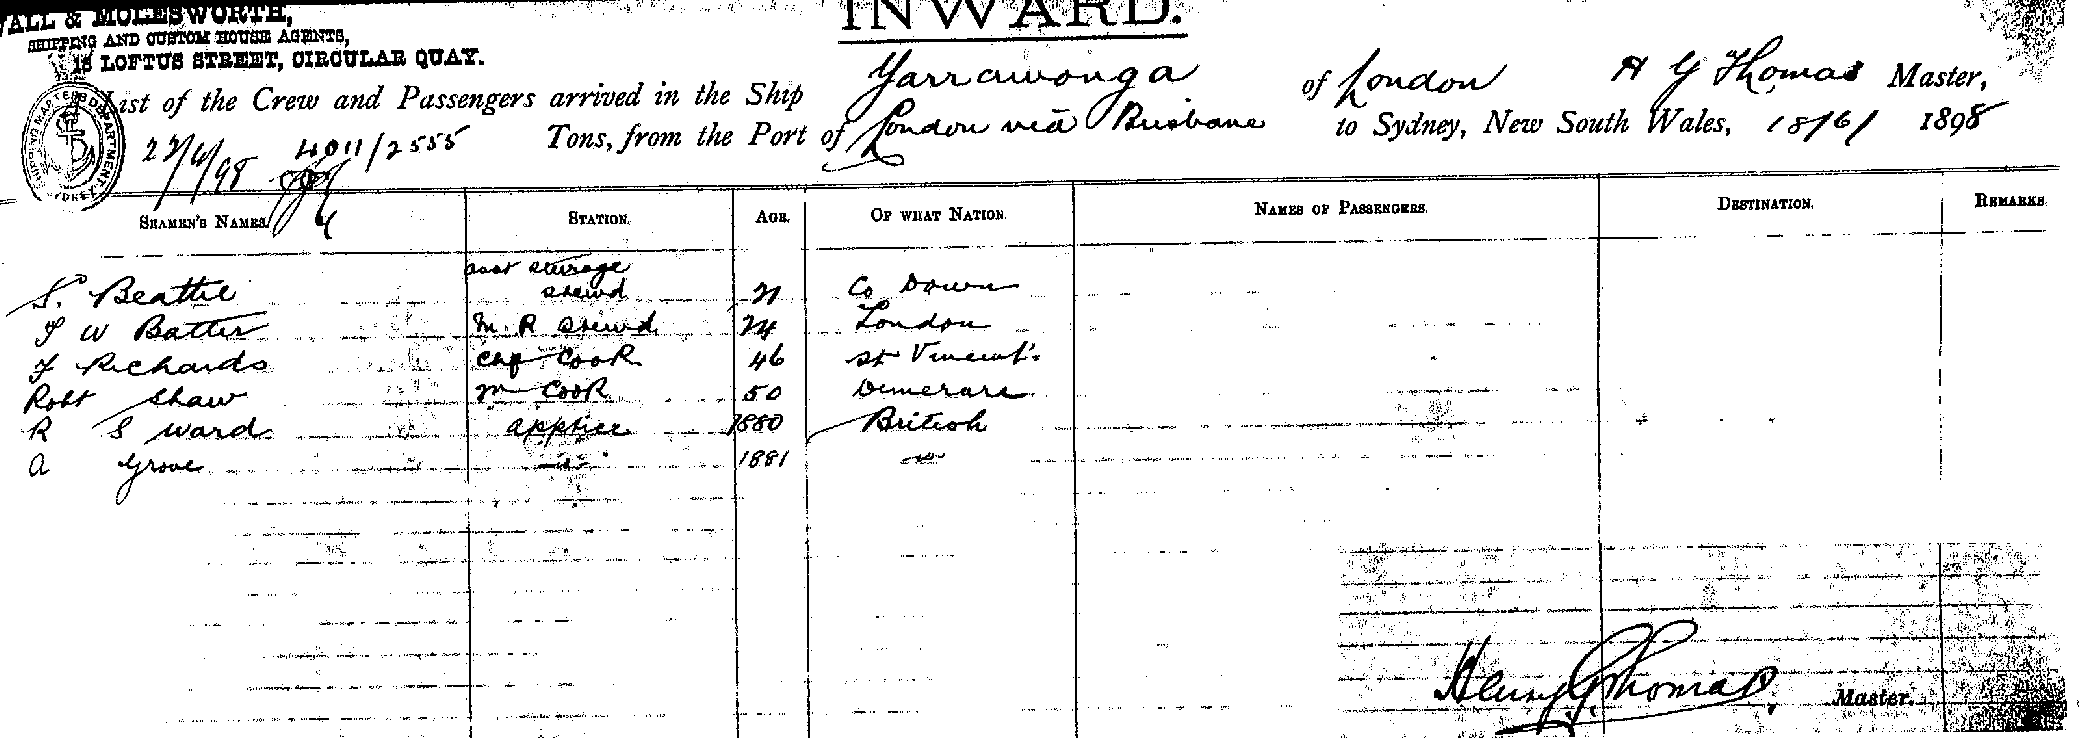 WALL & MOLESWORTH,
SHIPPING AND CUSTOM HOUSE AGENTS,
18 LOFTUS STREET, CIRCULAR QUAY.
INWARD.
List of the Crew and Passengers arrived in the Ship Yarrawonga of London H G Thomas Master,
22/6/98 4011/2555 Tons, from the Port of London via Brisbane to Sydney, New South Wales, 18/6/ 1898
SEAMEN'S NAMES. STATION. AGE. OF WHAT NATION. NAMES OF PASSENGERS. DESTINATION. REMARKS
S. Beattie asst steerage stewd 21 Co Down
T W Batter M. R stewd 24 London
F Richards Cook 46 St Vincent's
Robt Shaw m Cook 50 Demerara
R S Ward apptice 1880 British
A Grove -"- 1881 "
Henry G. Thomas. Master.